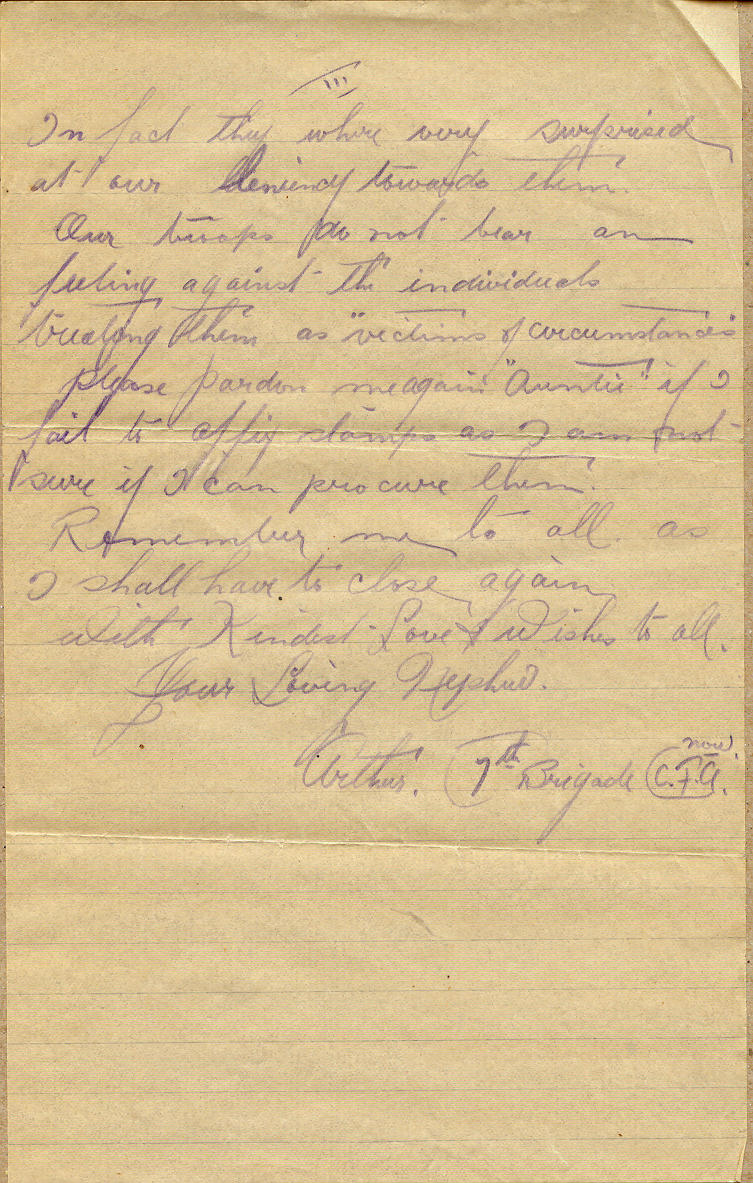 III
In fact they where very surprised
at our leniency towards them.
Our troops do not bear an
feeling against the individuals
treating them as "victims of circumstances"
please pardon me again "Auntie" if I
fail to affix stamps as I am not
sure if I can procure them.
Remember me to all. as
I shall have to close again
with Kindest Love & Wishes to all.
Your Loving Nephew.
now
Arthur. 7th Brigade C.F.A.